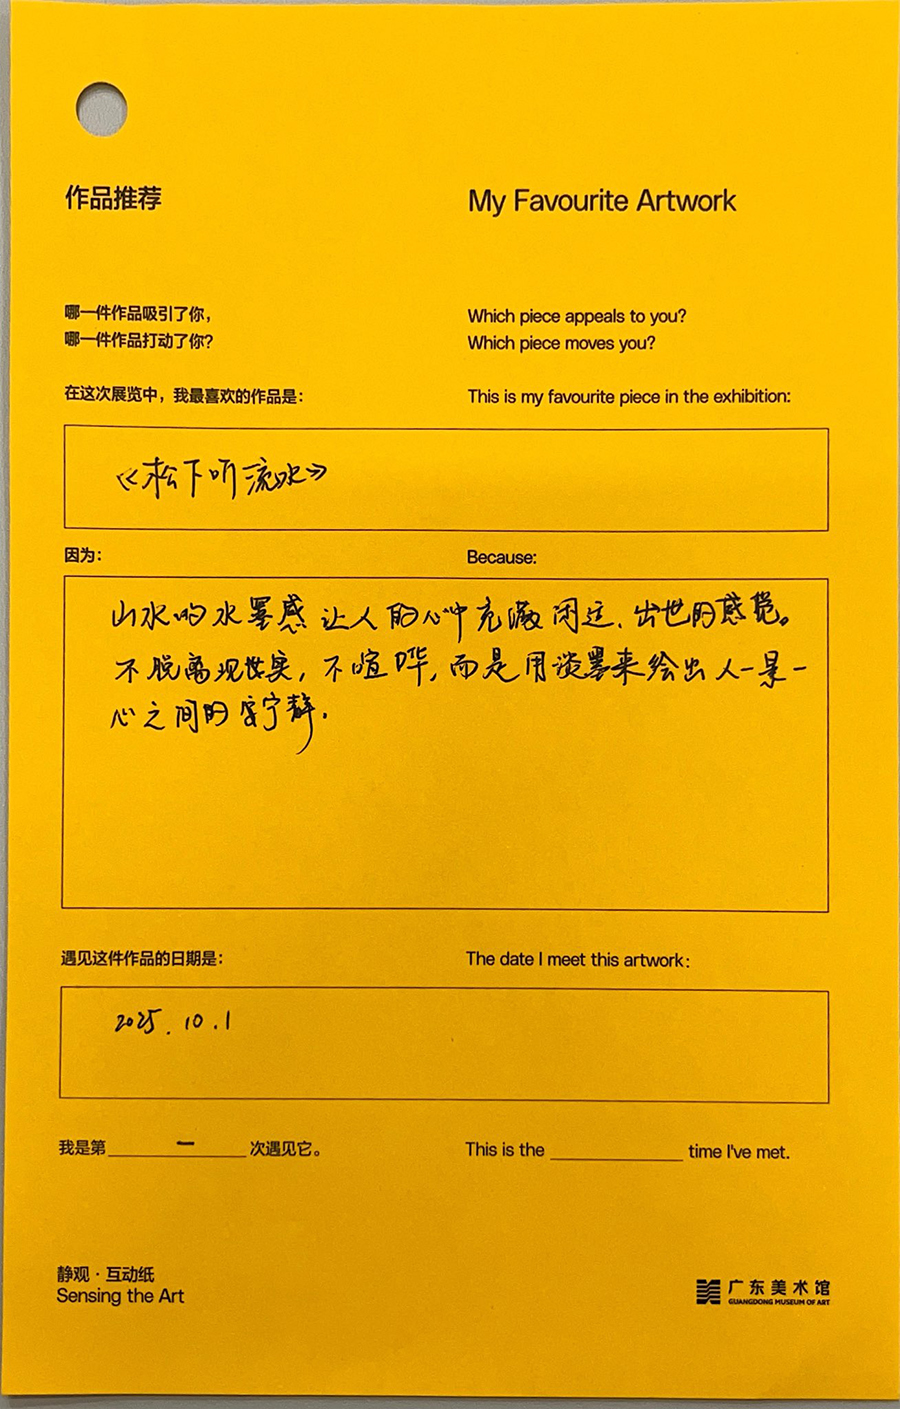 作品推荐
My Favourite Artwork
哪一件作品吸引了你，
哪一件作品打动了你？
Which piece appeals to you?
Which piece moves you?
在这次展览中，我最喜欢的作品是：
This is my favourite piece in the exhibition:
《松下听流水》
因为：
Because:
山水的水墨感让人的心中充满闲适、出世的感觉。
不脱离现世实，不喧哗，而是用淡墨来绘出人一景一
心之间的安宁静。
遇见这件作品的日期是：
The date I meet this artwork:
2025.10.1
我是第 一 次遇见它。
This is the ______ time I've met.
静观·互动纸
Sensing the Art
广东美术馆
GUANGDONG MUSEUM OF ART